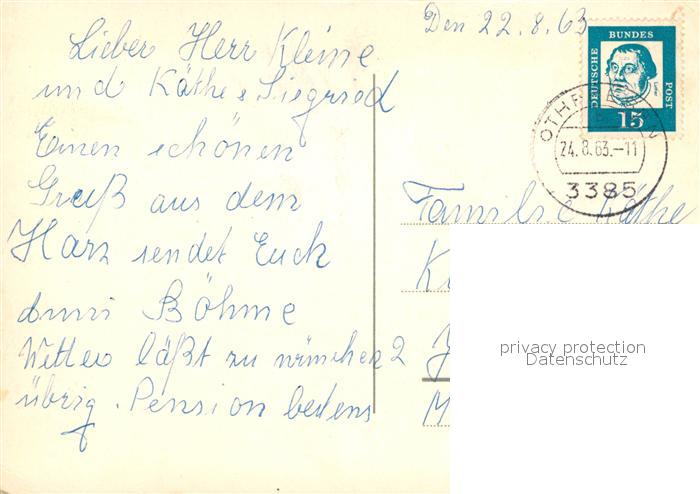 Den 22.8.63
Lieber Herr Kleine
und Käthe & Siegried
Einen schönen
Gruß aus dem
Harz sendet Euch
Böhme
Wetter läßt zu wünschen
übrig. Pension bestens
DEUTSCHE BUNDES POST
15
24.8.63.-11
3385
Familie Käthe
privacy protection
Datenschutz